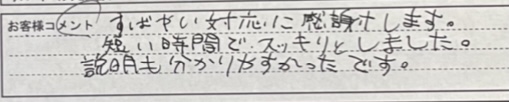 お客様コメント すばやい対応に感謝します。
短い時間でスッキリとしました。
説明も分かりやすかったです。